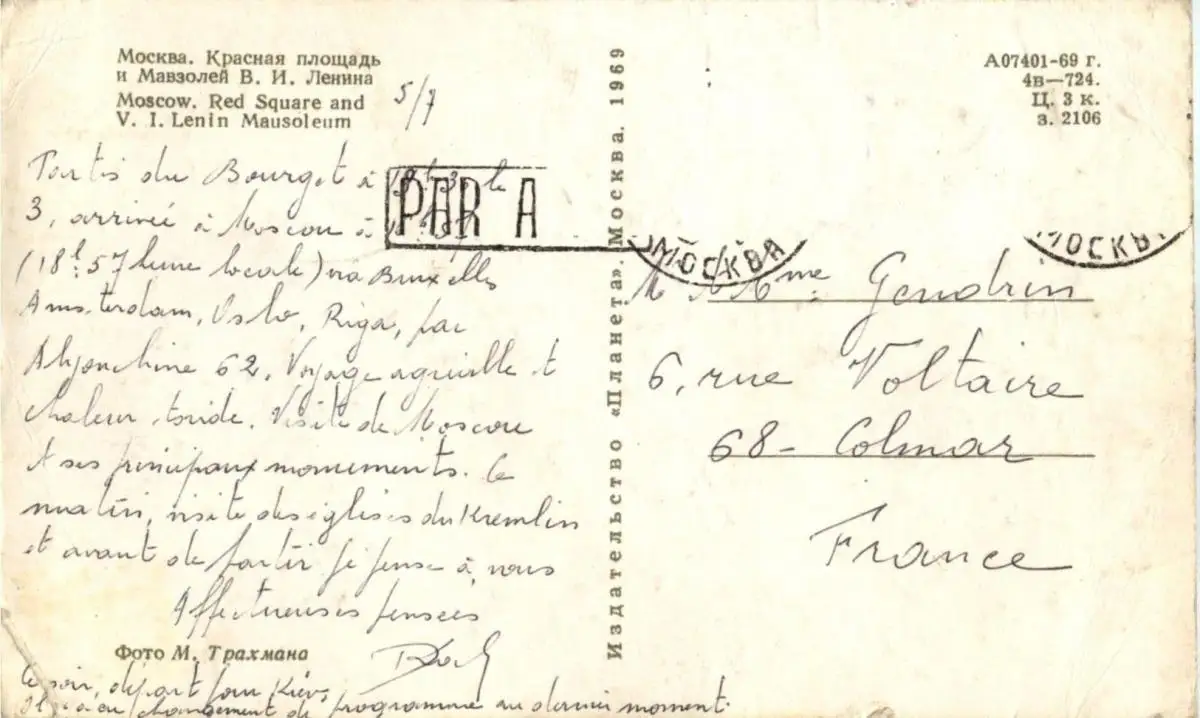 Москва. Красная площадь
и Мавзолей В. И. Ленина
Moscow. Red Square and
V. I. Lenin Mausoleum
5/7
Partis du Bourget à le
3, arrivée à Moscou à
(18h57 heure locale) via Bruxelles
Amsterdam, Oslo, Riga, par
62. Voyage agréable et
chaleur torride. Visite de Moscou
et ses principaux monuments. Ce
matin, visite des églises du Kremlin
et avant de partir je pense à vous
Affectueuses pensées
Фото М. Трахмана
Ce soir, départ pour Kiév,
Il y a eu changement de programme au dernier moment.
Издательство «Планета». Москва. 1969
А07401-69 г.
4в—724.
Ц. 3 к.
з. 2106
PAR A
МОСКВА
МОСКВА
M. Mme Gendrin
6, rue Voltaire
68 - Colmar
France